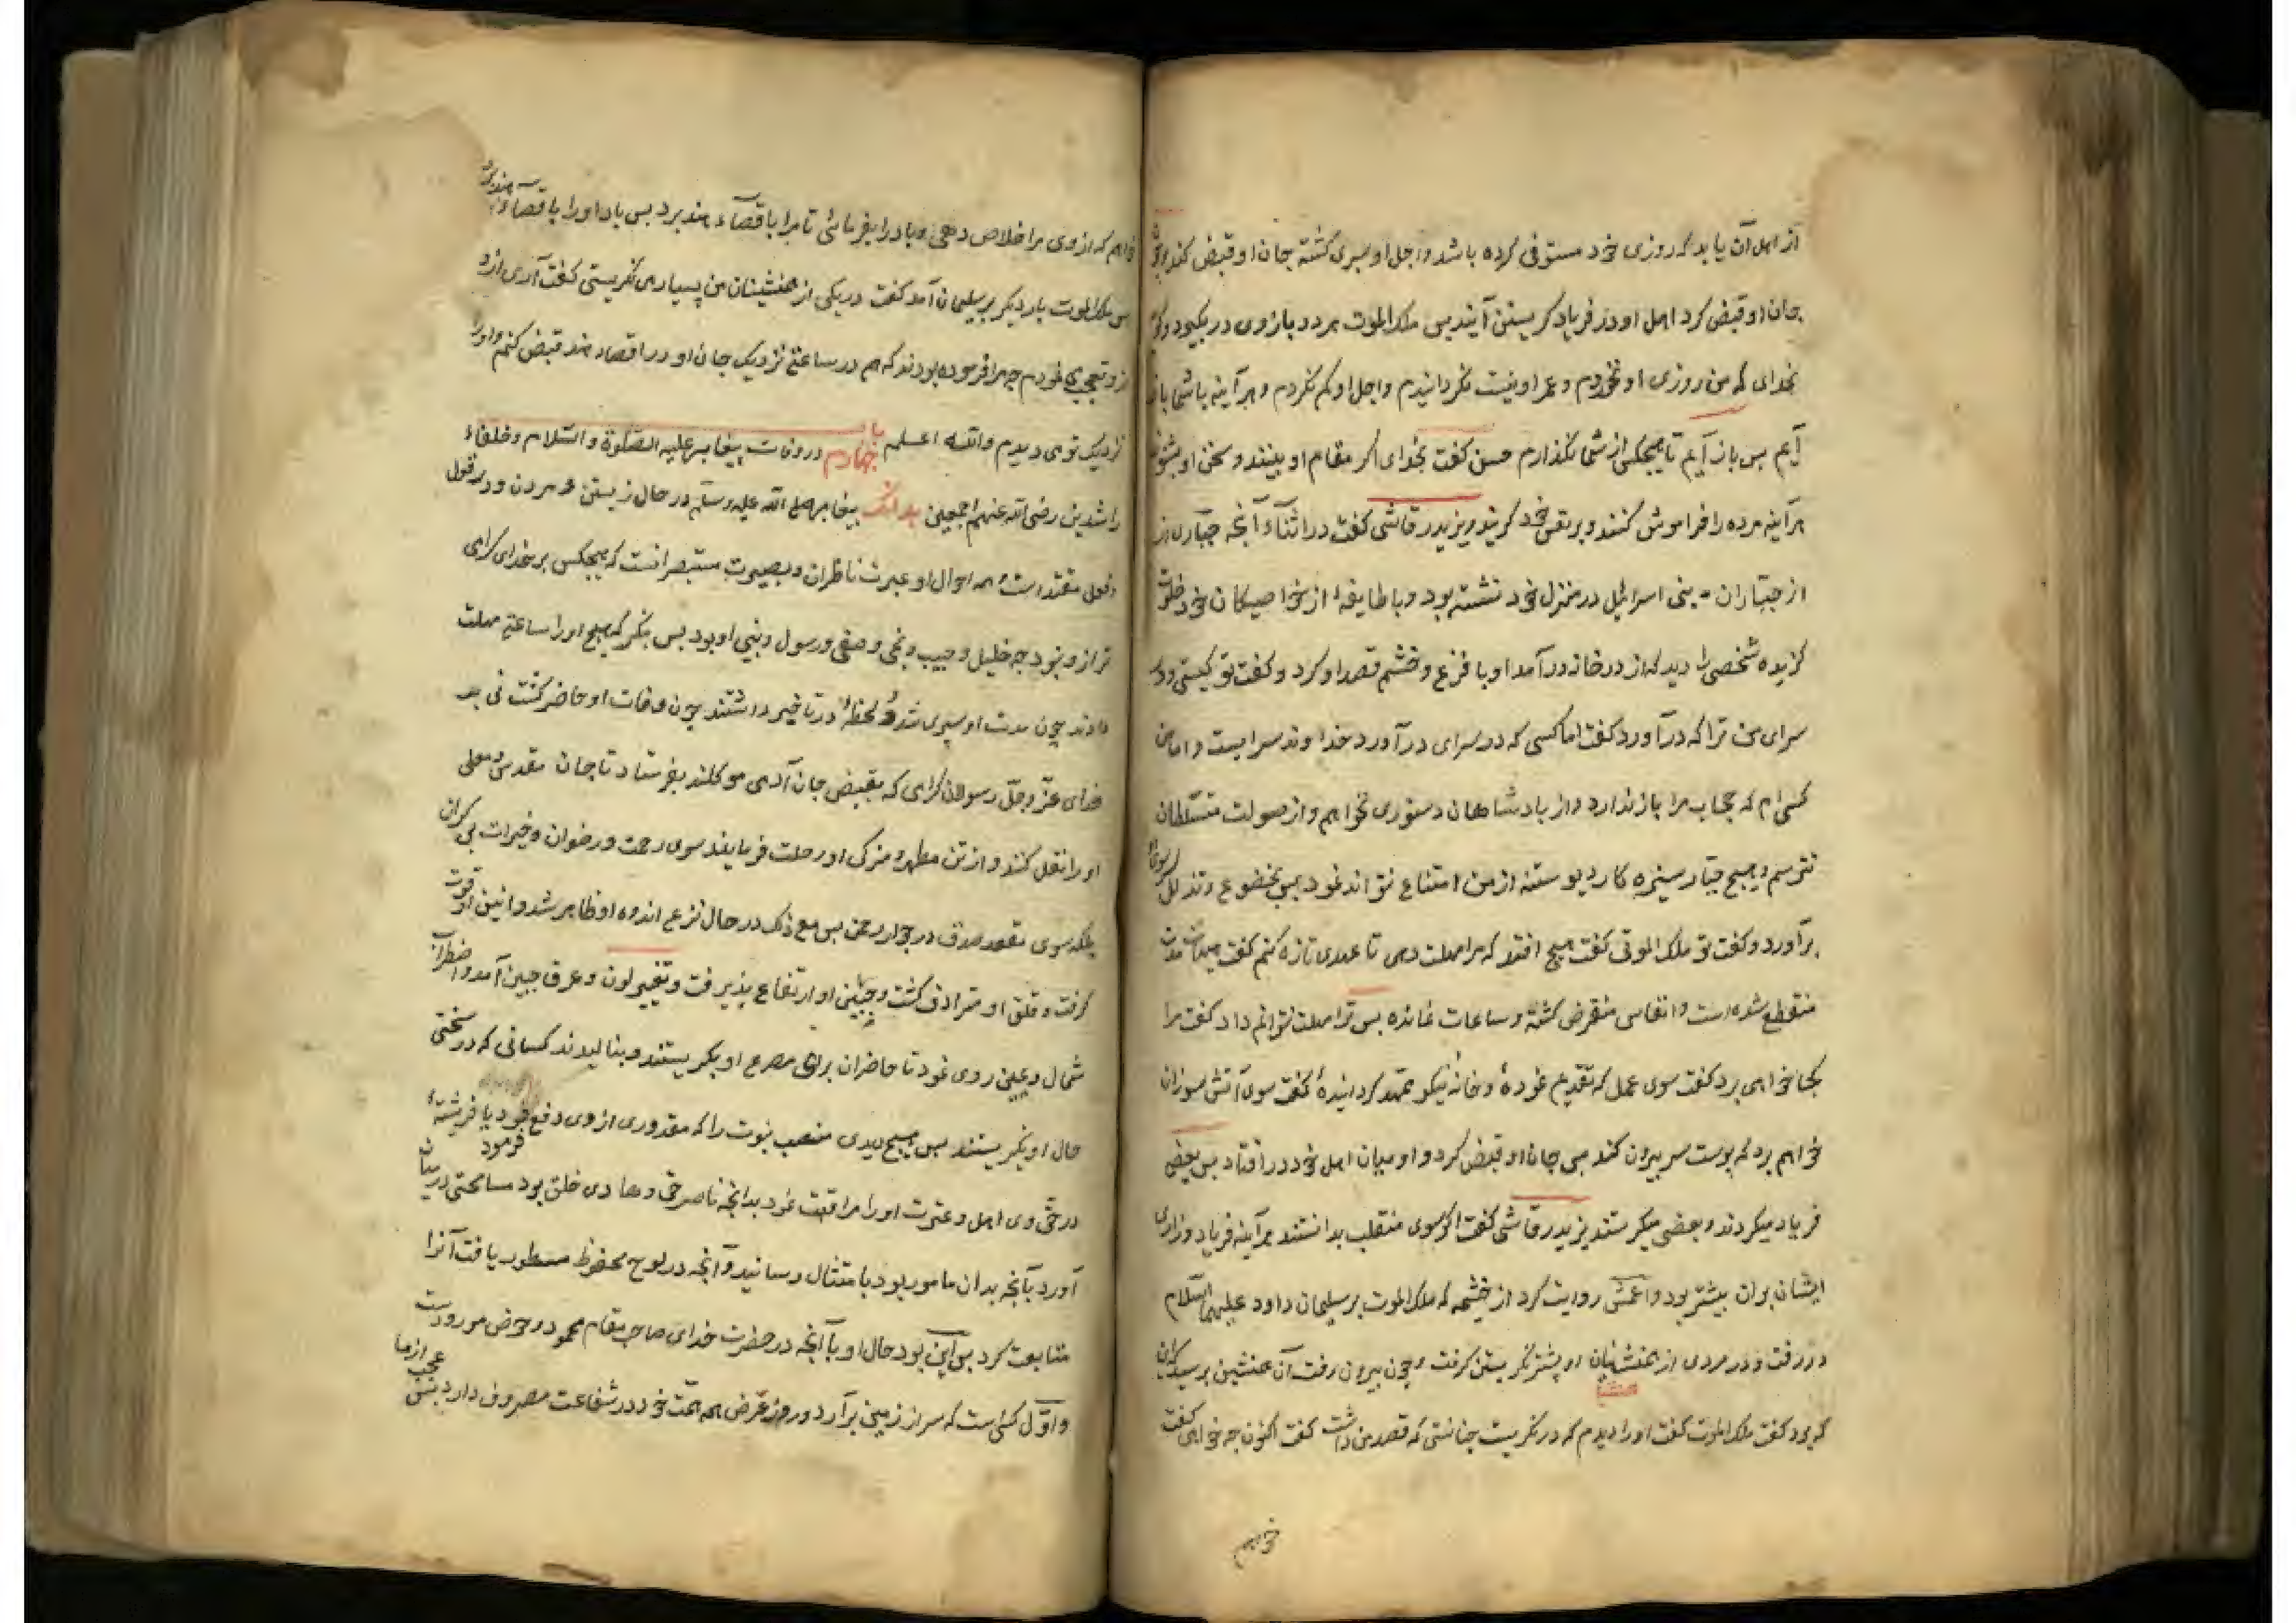 از اهل آن یابد که روزی خود مستوفی کرده باشد و اجل او سپری کشته جان او قبض کند و چون
جان او قبض کرد اهل او در فریاد کریستن آیند بس ملک الموت هر دو بازوی در بکیرد و کوید
بخدای که من روزی او نخوردم و عمر او نیست نکردانیدم و اجل او کم نکردم و هر آینه با شما باز
آیم بس باز آیم تا هیچکس از شما نکذارم حسن کفت بخدای اکر مقام او بینند و سخن او بشنوند
هر آینه مرده را فراموش کنند و بر نفس خود کریند و یزید رقاشی کفت در اثناء آنجه جباری از
از جباران بنی اسرائیل در منزل خود نشسته بود و با طایفهٔ از خواصیکان خود خلوت
کزیده شخصی را دید که از در خانه در آمد او با فزع و خشم قصد او کرد و کفت تو کیستی و در
سرای من ترا که در آورد کفت اما کسی که در سرای در آورد خداوند سرایست و اما من
کسی ام که حجاب مرا باز ندارد و از بادشاهان دستوری نخواهم و از صولت متسلطان
نترسم و هیچ جبار ستیزه کار دیو ستنه از من امتناع نتواند نمود بس بخضوع و تذلل سر سوی او
برآورد و کفت تو ملک الموتی کفت هیچ افتد که مرا مهلت دهی تا عهدی تازه کنم کفت هیهات مدت
منقطع شده است و انفاس منقرض کشته و ساعات نمانده بس ترا مهلت نتوانم داد کفت مرا
کجا خواهی برد کفت سوی عمل که تقدیم نمودهٔ و خانه نیکو ممهد کردانیدهٔ کفت سوی آتش سوزان
خواهم برد که بوست سر بیرون کند بس جان او قبض کرد و او میان اهل خود در افتاد بس بعضی
فریاد میکردند و بعضی میکرستند یزید رقاشی کفت اکر سوی منقلب بدانستند هر آینه فریاد و زاری
ایشان بران بیشتر بود و اعمش روایت کرد از خثیمه که ملک الموت بر سلیمان داود علیهما السلام
در رفت و در مردی از همنشینان او بیشتر نکریستن کرفت و چون بیرون رفت آن همنشین برسید که این
که بود کفت ملک الموت کفت او را دیدم که در من نکریست چنانستی که قصد من داشت کفت اکنون چه خواهی کفت
خواهم
خواهم که از وی مرا خلاص دهی و باد را بفرمائی تا مرا باقصاء هند برد بس باد او را باقصاء هند برد
بس ملک الموت بار دیکر بر سلیمان آمد کفت در یکی از همنشینان من بسیار می نکریستی کفت آری از و
از و تعجب می نمودم چه مرا فرموده بودند که هم در ساعتی نزدیک جان او در اقصاء هند قبض کنم و او را
نزدیک تو می دیدم والله اعلم باب چهارم در وفات پیغامبر علیه الصلوة والسلام و خلفاء
راشدین رضی الله عنهم اجمعین بدانک پیغامبر صلی الله علیه وسلم در حال زیستن و مردن و در قول
و فعل مقتداست و همه احوال او عبرت ناظران و بصیرت مستبصرانست که هیچکس بر خدای کرامی
تر از و نبود چه خلیل و حبیب و نجی و صفی و رسول و نبی او بود بس بنکر که هیچ او را ساعتی مهلت
دادند چون مدت او سپری شد و لحظهٔ در تاخیر داشتند چون وفات او حاضر کشت نی بد
خدای عز و جل رسولان کرامی که بقبض جان آدمی موکلند بفرستاد تا جان مقدس و معلی
او را نقل کنند و از تن مطهر و مزکی او رحلت فرمایند سوی رحمت و رضوان و خیرات بی کران
بلکه سوی مقعد صدق در جوار رحمن بس مع ذلک در حال نزع اندوه او ظاهر شد و انین او قوت
کرفت و قلق او مترادف کشت و جبین او ارتفاع بذیرفت و تغییر لون و عرق جبین آمد و اضطراب
شمال و یمین روی نمود تا حاضران برای مصرع او بکریستند و بنالیدند کسانی که در سختی
حال او نکریستند بس هیچ دیدی منصب نبوت را که مقدوری از وی دفع فرمود یا فریشتهٔ
در حق وی اهل و عترت او را مراقبت نمود بدانچه ناصر حق و هادی خلق بود مسامحتی در میان
آورد بآنچه بدان مامور بود با متثال رسانید و آنچه در لوح محفوظ مسطور یافت آنرا
متابعت کرد بس این بود حال او بآ آنچه در حضرت خدای صاحب مقام محمود و حوض مورودست
و اول کسی است که سر از زمین برآرد و روز عرض همه همت خود در شفاعت مصروف دارد بس عجب از ما